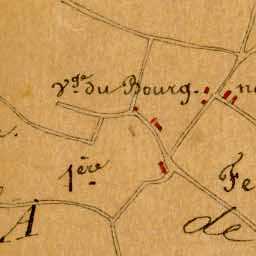 Vge du Bourg.
1ère
Fe
A
de